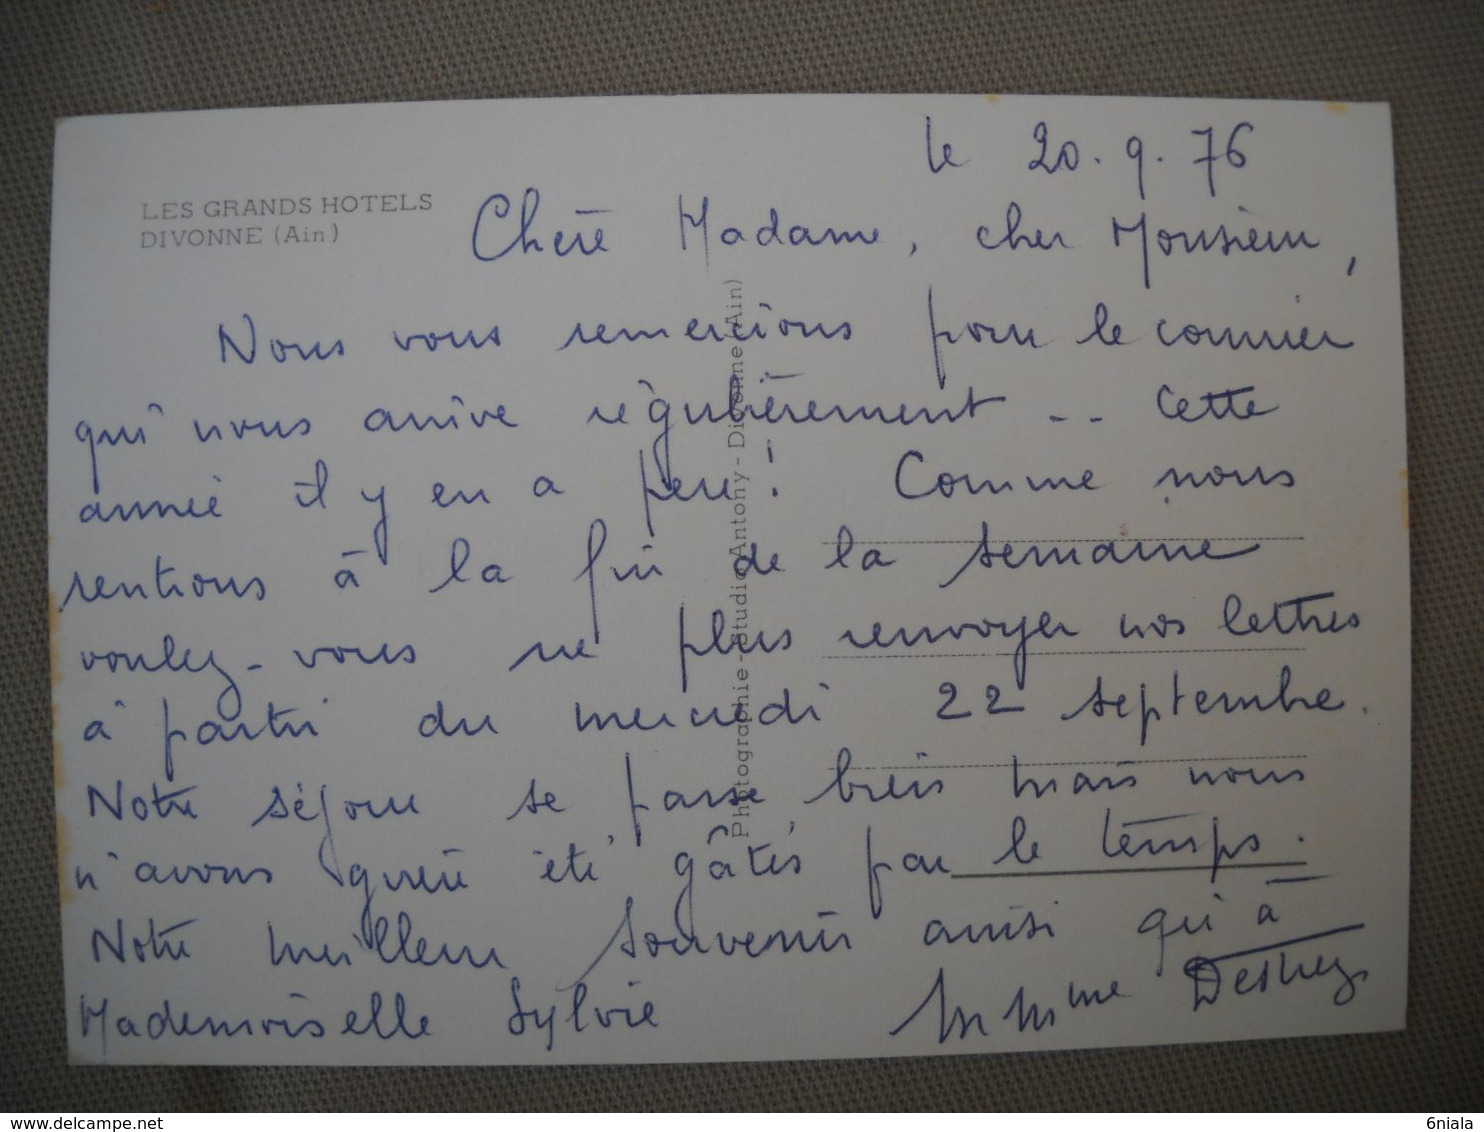 le 20.9.76
LES GRANDS HOTELS
DIVONNE (Ain)
Chère Madame, cher Monsieur,
Nous vous remercions pour le courrier
qui nous arrive régulièrement -- Cette
année il y en a peu! Comme nous
rentrons à la fin de la semaine
voulez-vous ne plus renvoyer nos lettres
à partir du mercredi 22 septembre.
Notre séjour se passe bien mais nous
n'avons guère été gâtés par le temps.
Notre meilleur souvenir ainsi qu'à
Mademoiselle Sylvie
M Mme
Photographie - Studio Antony - Divonne (Ain)
delcampe.net
6niala